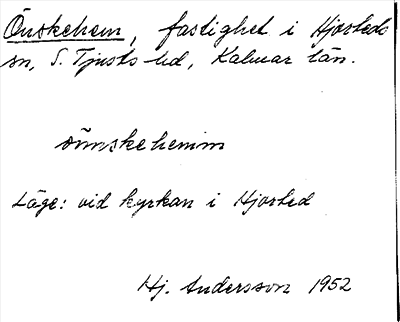 Önskehem, fastighet i Hjorteds
sn, S. Tjusts hd, Kalmar län.
önnskehemm
Läge: vid kyrkan i Hjorted
Hj. Andersson 1952